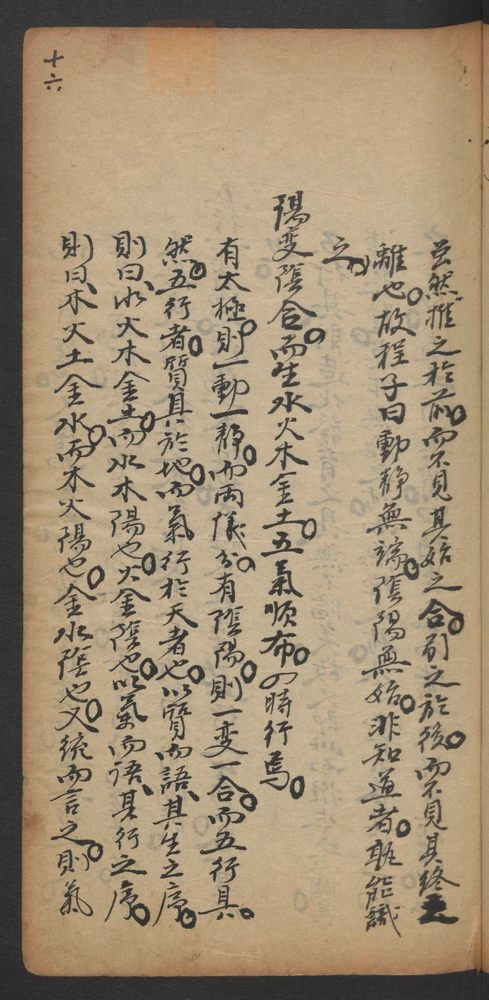 虽然推之於前而不見其始之合引之於後而不見其終之
離也故程子曰動静無端陰陽無始非知道者孰能識
之
陽变陰合而生水火木金土五氣順布四時行焉
有太極則一動一静而兩儀分有陰陽則一变一合而五行具
然五行者質具於地而氣行於天者也以質而語其生之序
則曰水火木金土而水木陽也火金陰也以氣而語其行之序
則曰木火土金水而木火陽也金水陰也又統而言之則氣
十六